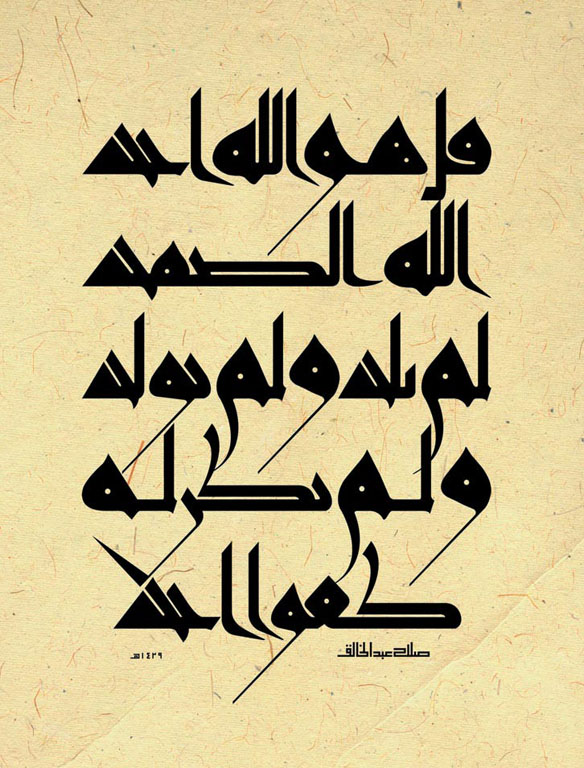 قل هو الله احد
الله الصمد
لم يلد ولم يولد
ولم يكن له
كفوا احد
صلاح عبدالخالق
١٤٢٩هـ